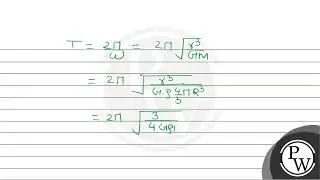 T = 2π/ω = 2π √(r³/GM)
= 2π √(r³/(G.ρ 4π/3 R³))
= 2π √(3/(4Gρπ))
PW